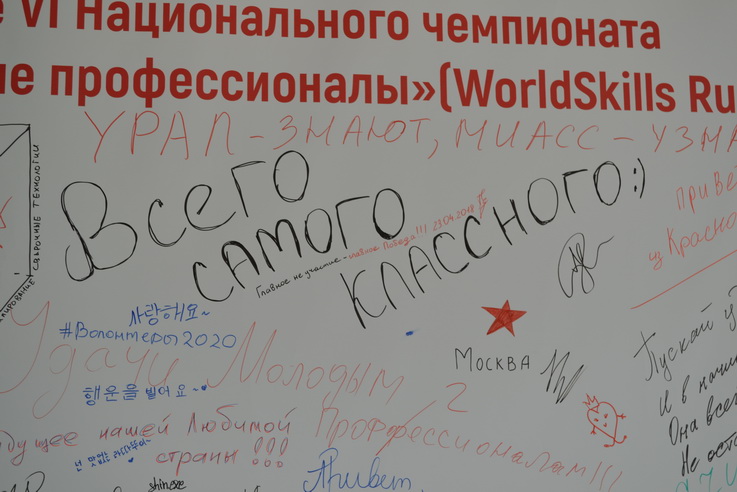 VI Национального чемпионата
профессионалы»(WorldSkills Ru
УРАЛ-ЗНАЮТ, МИАСС-УЗНА
СВАРОЧНЫЕ ТЕХНОЛОГИИ
Всего
САМОГО
КЛАССНОГО:)
Главное не участие - главное победа!!! 29.04.2018
привет
из Красно
사랑해요~
#Волонтеры2020
Удачи Молодым
Профессионалам!!!
행운을 빌어요~
МОСКВА
нашей Любимой
страны!!!
Пускай
И в
Она все
Не ост
Привет,
shineze